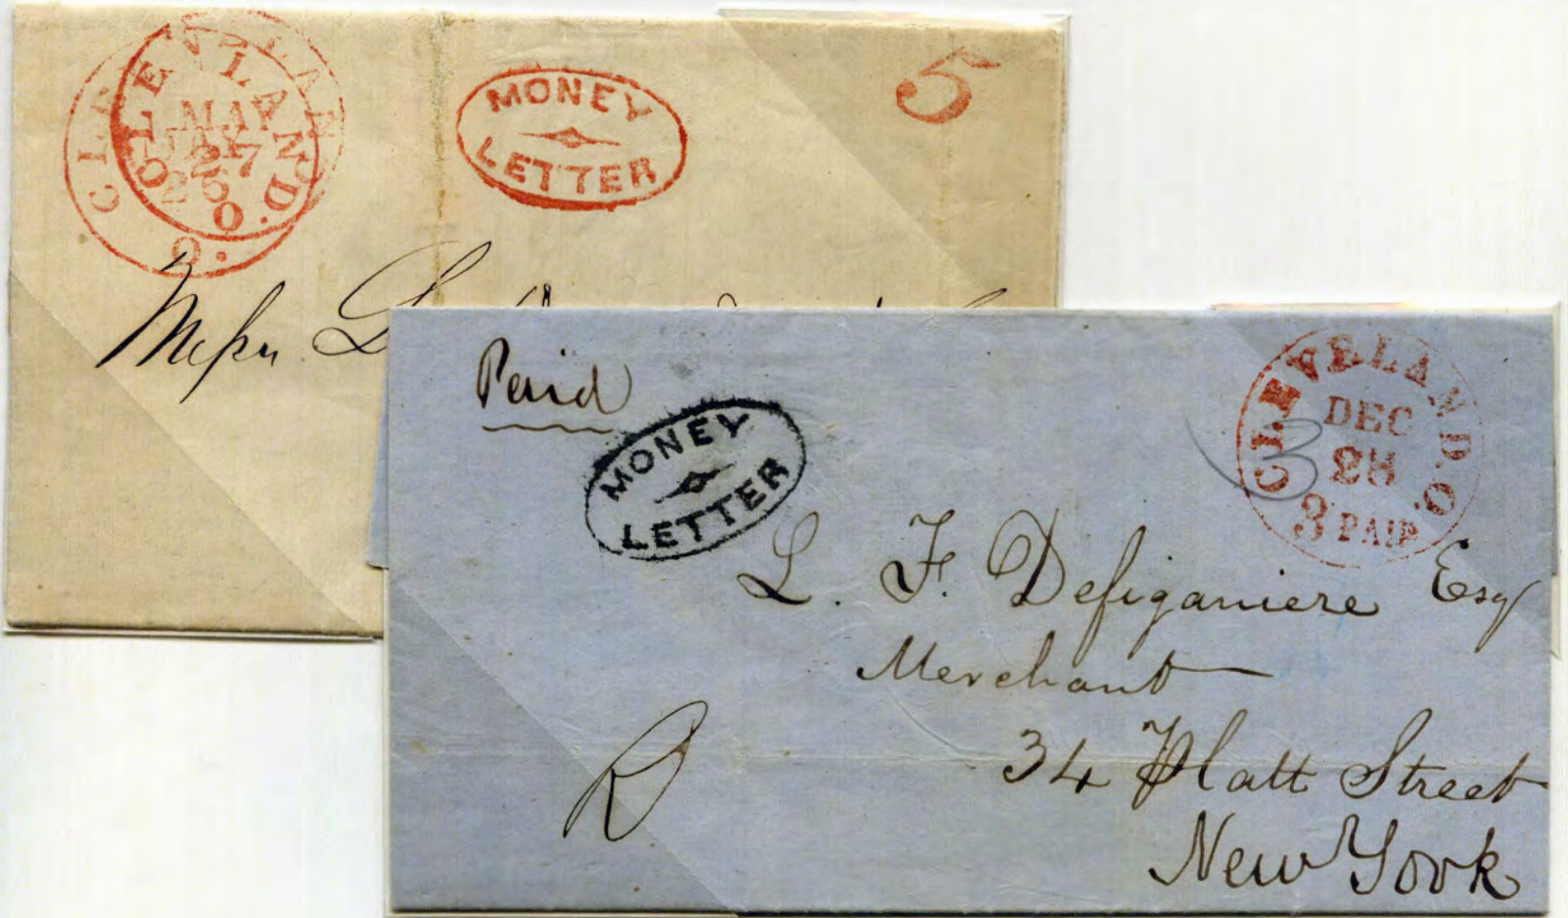 CLEVELAND. O.
MAY
27
CLEVELAND
O.
25
MONEY
LETTER
5
Messrs.
Paid
MONEY
LETTER
CLEVELAND. O.
DEC
28
3 PAID
3
L. F. Defiganiere Esq
Merchant
34 Platt Street
New York
R